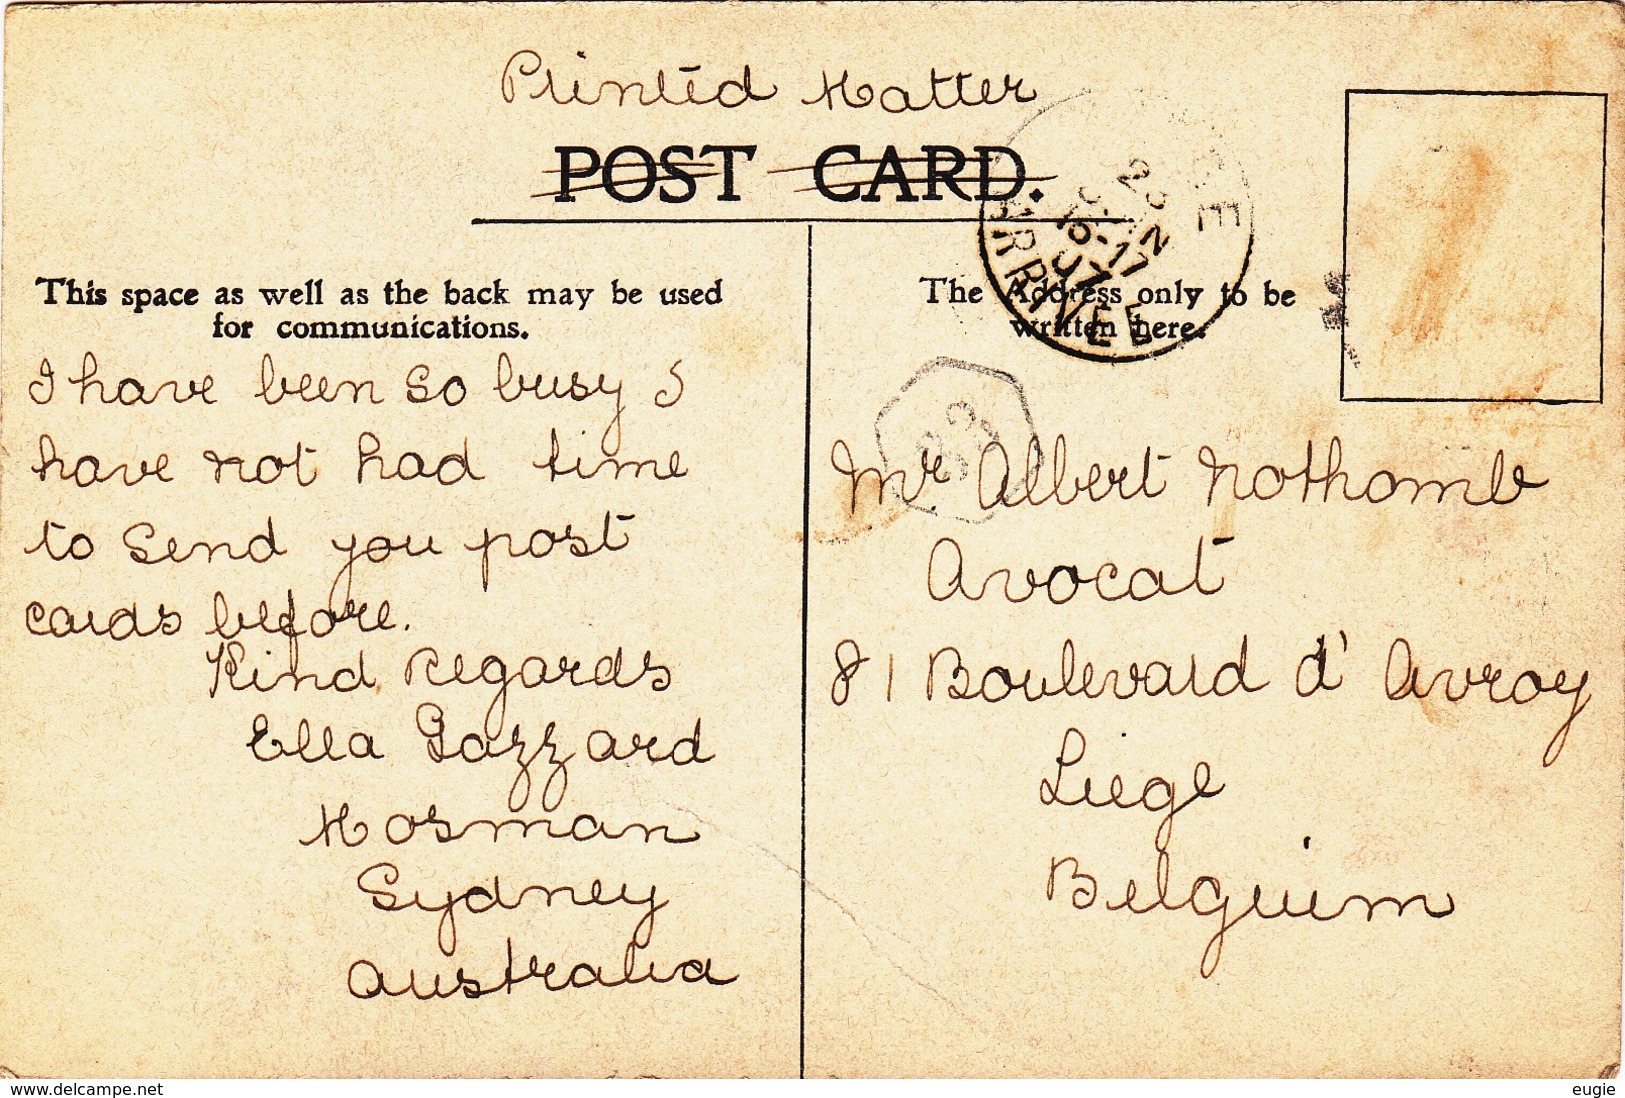 Printed Matter
POST CARD.
This space as well as the back may be used
for communications.
The Address only to be
written here.
I have been so busy I
have not had time
to send you post
cards before.
Kind Regards
Ella Gazzard
Mosman
Sydney
Australia
Mr Albert Nothomb
Avocat
81 Boulevard d' Avroy
Liege
Belguim
ARRIVEE
www.delcampe.net
eugie